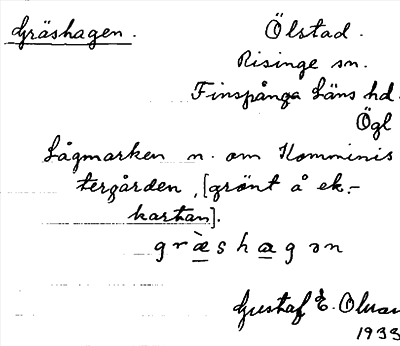 Gräshagen.
Ölstad.
Risinge sn.
Finspånga Läns hd.
Ögl
Lågmarken n. om Komminis
tergården, [grönt å ek.-
kartan].
grä̀shagən
Gustaf E. Olsson
1933